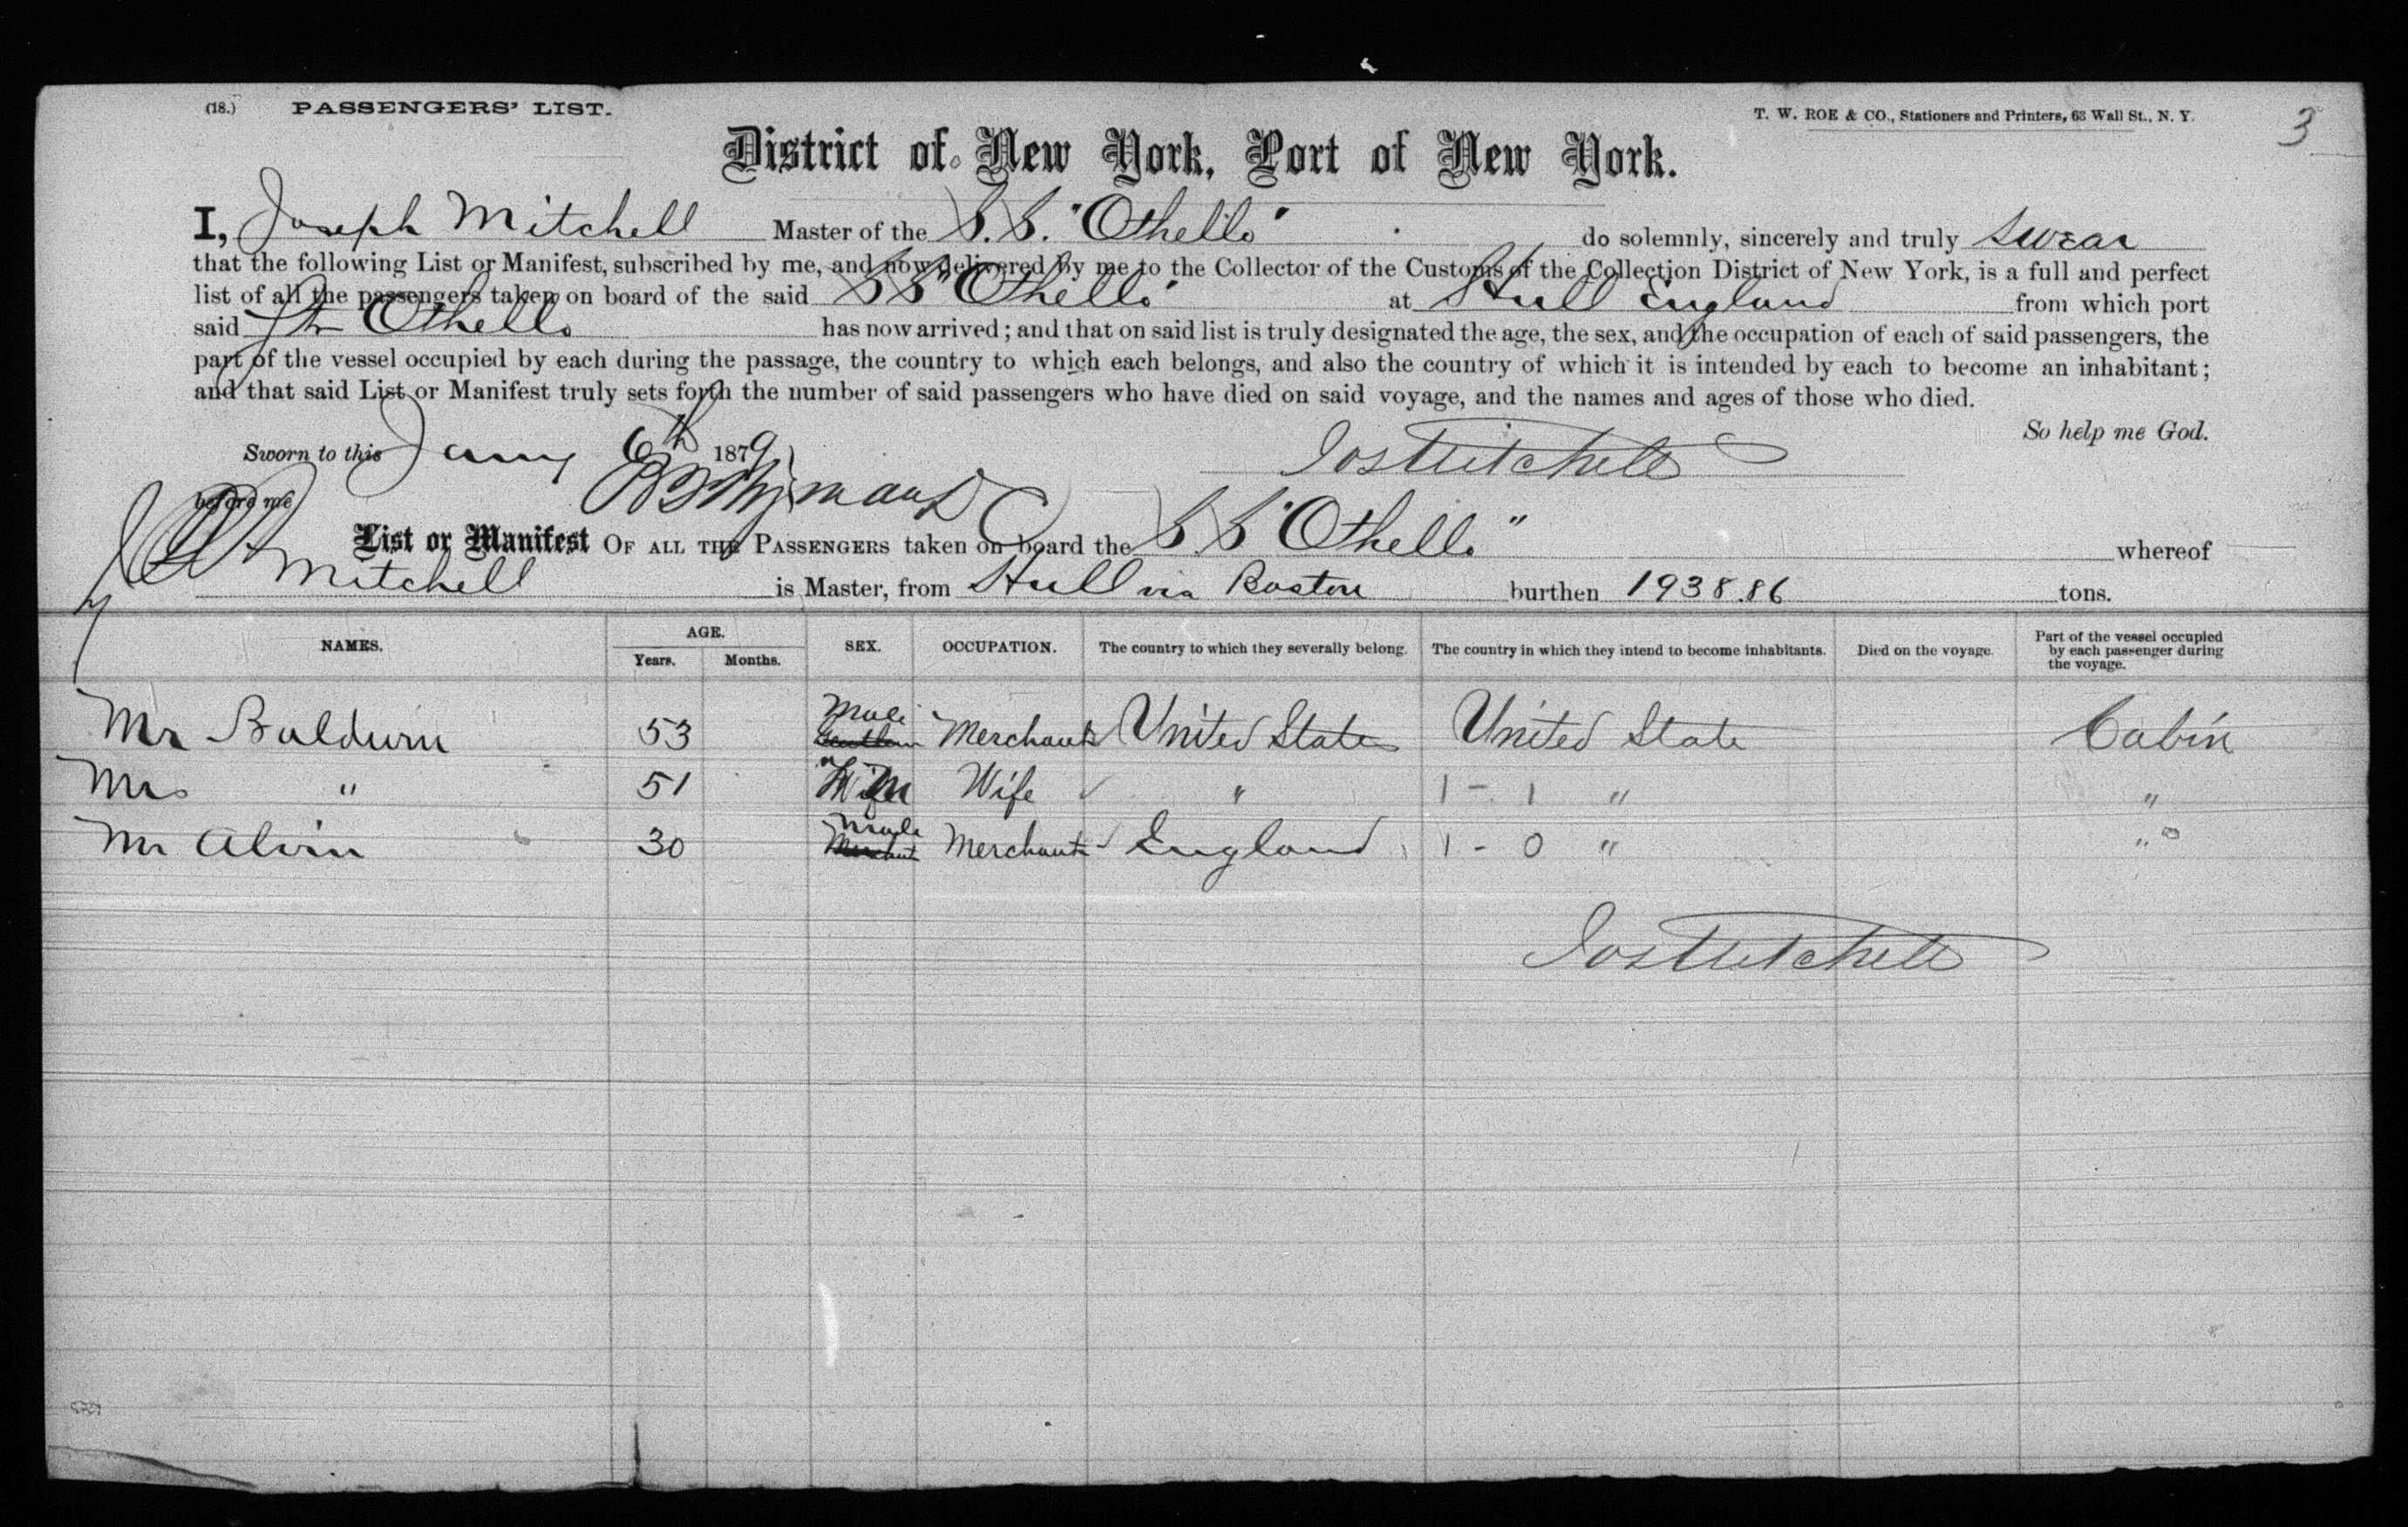 (18.) PASSENGERS' LIST.
T. W. ROE & CO., Stationers and Printers, 63 Wall St., N. Y.
3
District of New York, Port of New York.
I, Joseph Mitchell Master of the S.S. "Othello" do solemnly, sincerely and truly swear
that the following List or Manifest, subscribed by me, and now delivered by me to the Collector of the Customs of the Collection District of New York, is a full and perfect
list of all the passengers taken on board of the said SS "Othello" at Hull England from which port
said Str Othello has now arrived; and that on said list is truly designated the age, the sex, and the occupation of each of said passengers, the
part of the vessel occupied by each during the passage, the country to which each belongs, and also the country of which it is intended by each to become an inhabitant;
and that said List or Manifest truly sets forth the number of said passengers who have died on said voyage, and the names and ages of those who died.
So help me God.
Sworn to this Jany 6th 1879
Jos Mitchell
before me
List or Manifest OF ALL THE PASSENGERS taken on board the S.S "Othello" whereof
Mitchell is Master, from Hull via Boston burthen 1938.86 tons.
NAMES. AGE. Years. Months. SEX. OCCUPATION. The country to which they severally belong. The country in which they intend to become inhabitants. Died on the voyage. Part of the vessel occupied by each passenger during the voyage.
Mr Baldwin 53 Male Merchant United States United State Cabin
Mrs " 51 Wife " 1 - 1 " "
Mr Alvin 30 Male Merchant England 1 - 0 " "
Jos Mitchell